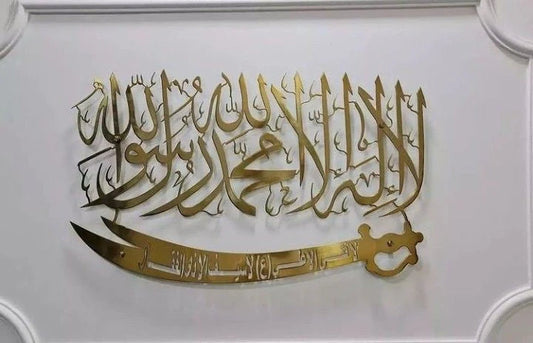 لا إله إلا الله محمد رسول الله
لا فتى إلا علي (ع) لا سيف إلا ذو الفقار